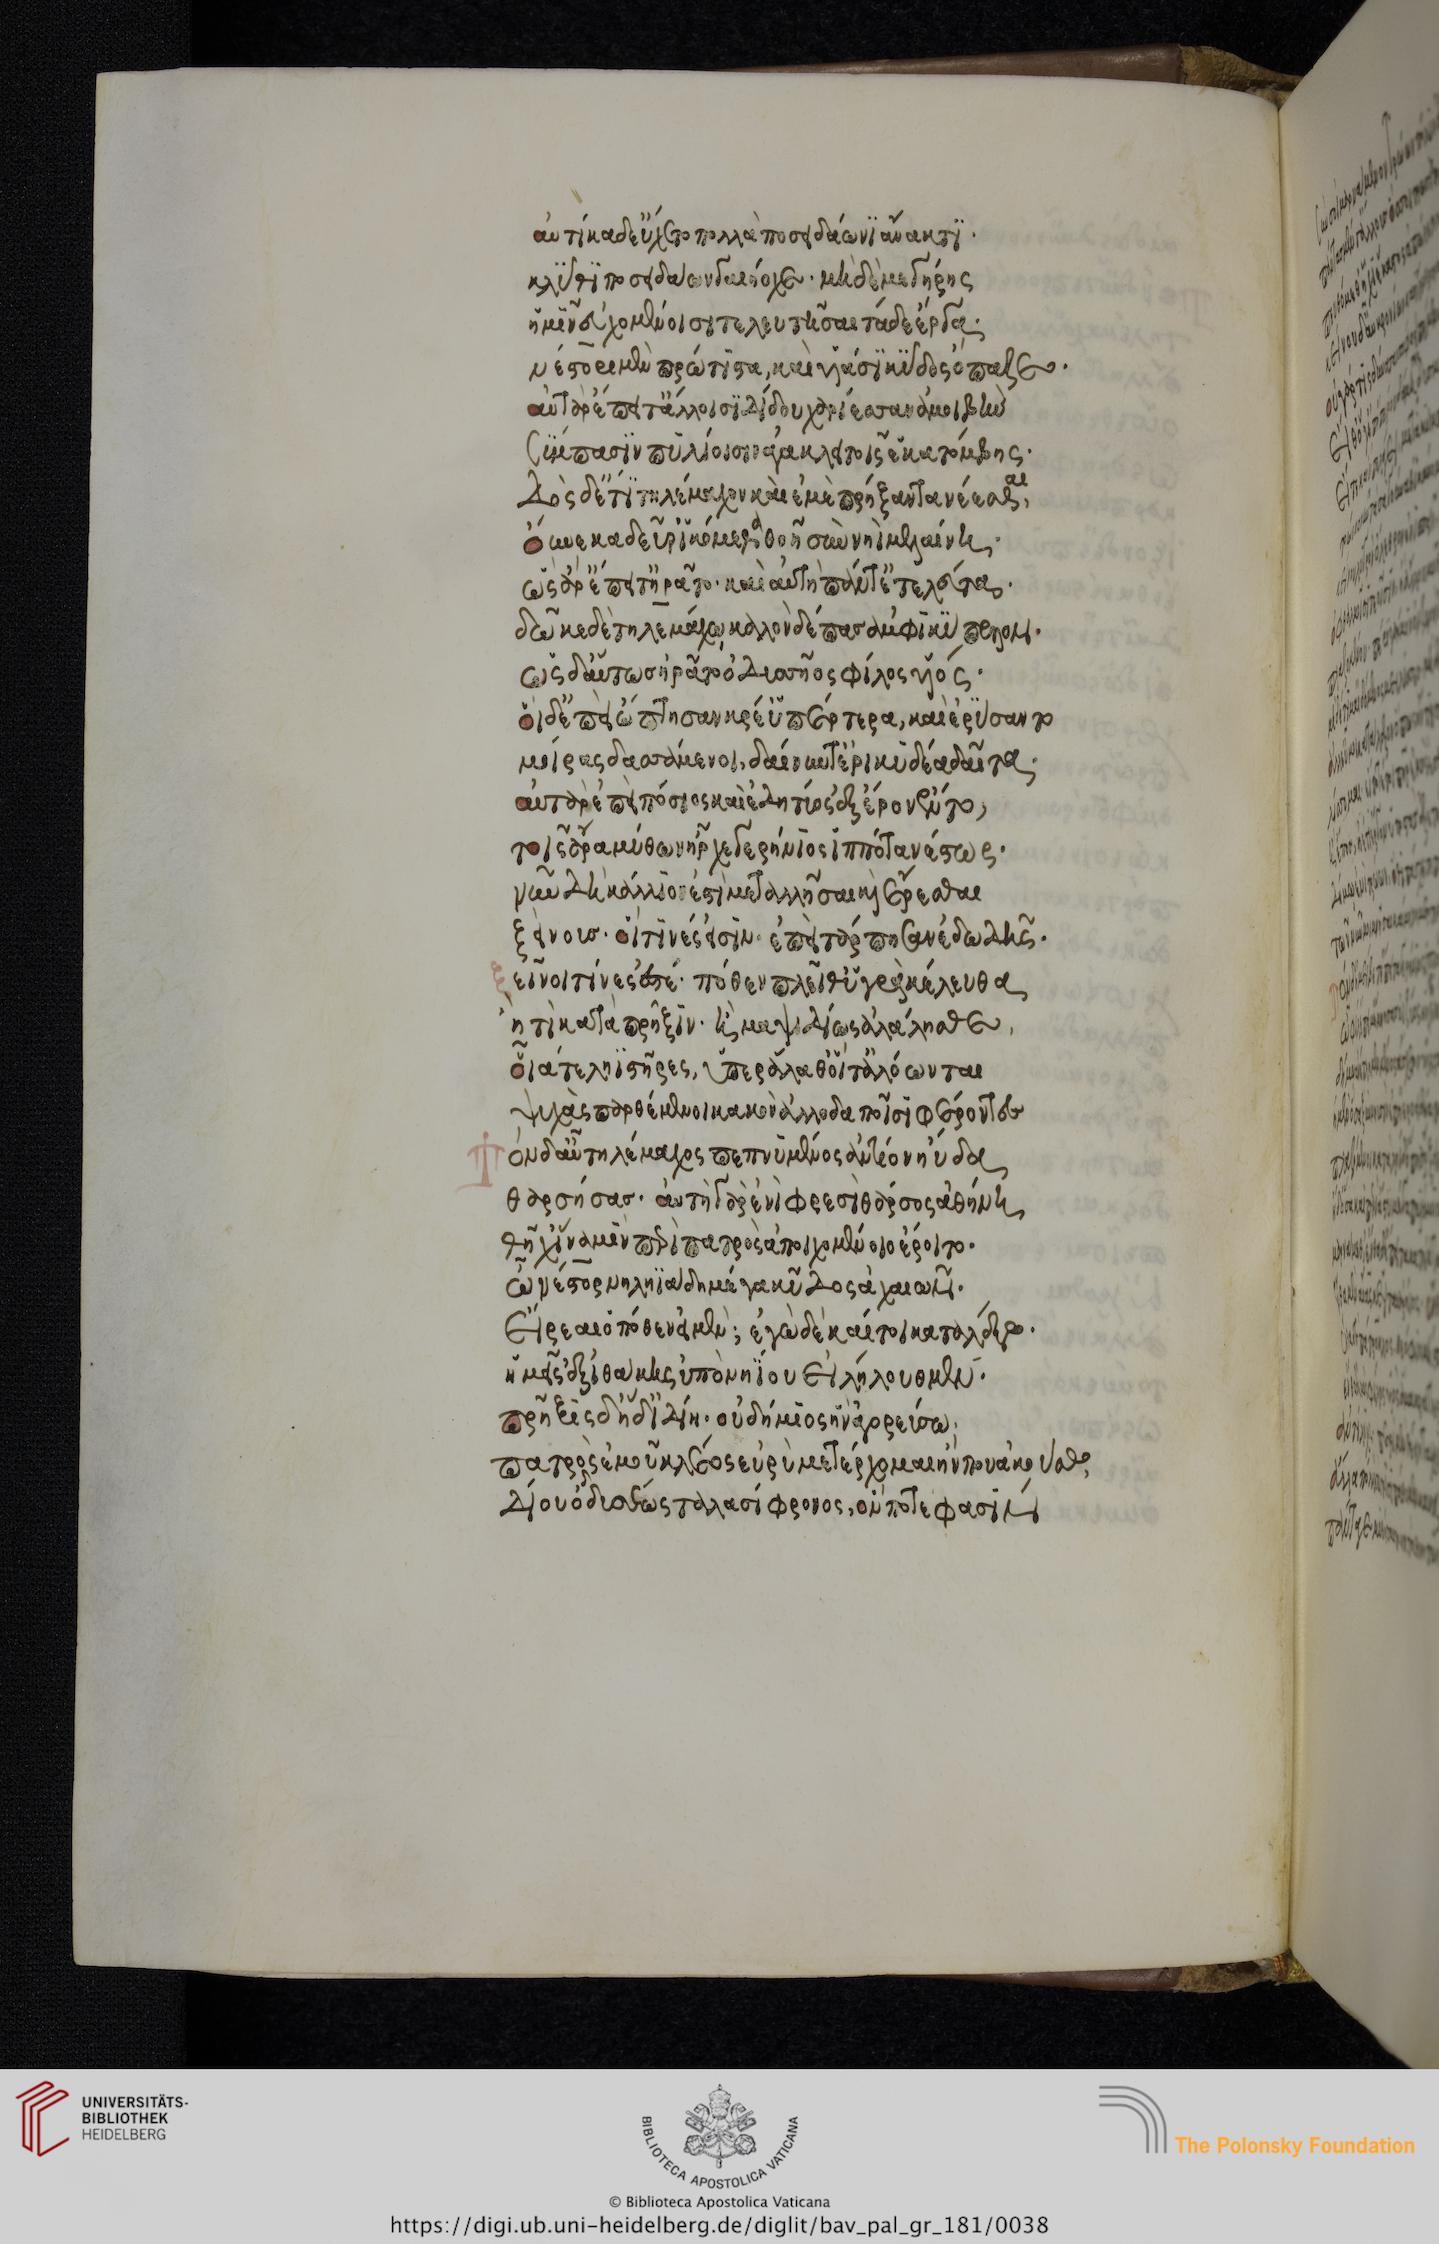 αὐτίκα δ' εὔχετο πολλὰ ποσειδάωνϊ ἄνακτϊ·
κλῦθϊ ποσείδαον γαιήοχε· μὴ δὲ μεγήρῃς
ἡμῖν εὐχομένοισι τελευτῆσαι τάδε ἔργα·
νέστορι μὲν πρώτιστα, καὶ υἱάσϊ κῦδος ὄπαζε·
αὐτὰρ ἔπειτ' ἄλλοισϊ δίδου χαρίεσσαν ἀμοιβὴν
σύμπασϊν πυλίοισιν ἀγακλειτοῖς ἑκατόμβης·
δὸς δ' ἔτϊ τηλέμαχον καὶ ἐμὲ πρήξαντα νέεσθαι,
οὕνεκα δεῦρ' ἱκόμεσθα θοῇ σὺν νηῒ μελαίνῃ·
ὣς ἄρ' ἔπειτ' ἠρᾶτο· καὶ αὐτὴ πάντ' ἐτελεύτα·
δῶκε δὲ τηλεμάχῳ καλὸν δέπας ἀμφικύπελλον·
ὣς δ' αὔτως ἠρᾶτο ὀδυσσῆος φίλος υἱός·
οἱ δ' ἔπει ὤπτησαν κρέ' ὑπέρτερα, καὶ ἐρύσαντο
μοίρας δασσάμενοι, δαίνυντ' ἐρικυδέα δαῖτα·
αὐτὰρ ἐπεὶ πόσιος καὶ ἐδητύος ἐξ ἔρον ἕντο,
τοῖς ἄρα μύθων ἦρχε γερήνιος ἱππότα νέστωρ·
νῦν δὴ κάλλιόν ἐστι μεταλλῆσαι καὶ ἐρέσθαι
ξείνους· οἵ τινές εἰσιν· ἐπεὶ τάρπησαν ἐδωδῆς·
ξεῖνοι τίνες ἐστέ· πόθεν πλεῖθ' ὑγρὰ κέλευθα
ἤ τι κατὰ πρῆξιν· ἢ μαψιδίως ἀλάλησθε,
οἷά τε ληϊστῆρες, ὑπεὶρ ἅλα θ' οἵ τ' ἀλόωνται
ψυχὰς παρθέμενοι κακὸν ἀλλοδαποῖσι φέροντες
Τὸν δ' αὖ τηλέμαχος πεπνυμένος ἀντίον ηὔδα
θαρσήσας· αὐτὴ γὰρ ἐνὶ φρεσὶ θάρσος ἀθήνη
θῆχ' ἵνα μὲν περὶ πατρὸς ἀποιχομένοιο ἔροιτο·
ὦ νέστορ νηληϊάδη μέγα κῦδος ἀχαιῶν·
εἴρεαι ὁπόθεν εἰμέν; ἐγὼ δὲ καί τοι καταλέξω·
ἡμεῖς ἐξ ἰθάκης ὑπονηΐου εἰλήλουθμεν·
πρῆξις δ' ἥδ' ἰδίη· οὐ δήμιος ἣν ἀγορεύσω,
πατρὸς ἐμοῦ κλέος εὐρὺ μετέρχομαι ἤν που ἀκούσω,
δίου ὀδυσσῆος ταλασίφρονος, ὅν ποτέ φασϊν
UNIVERSITÄTS-
BIBLIOTHEK
HEIDELBERG
BIBLIOTECA APOSTOLICA VATICANA
The Polonsky Foundation
© Biblioteca Apostolica Vaticana
https://digi.ub.uni-heidelberg.de/diglit/bav_pal_gr_181/0038